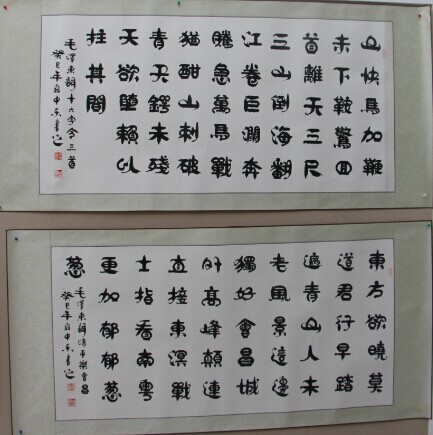 山快馬加鞭
未下鞍驚回
首離天三尺
三山倒海翻
江卷巨瀾奔
騰急萬馬戰
猶酣山刺破
青天鍔未殘
天欲墮賴以
拄其間
毛澤東詞十六字令三首
癸巳年
東方欲曉莫
道君行早踏
遍青山人未
老風景這邊
獨好會昌城
外高峰顛連
直接東溟戰
士指看南粵
更加郁郁葱
葱
毛澤東詞清平樂會昌
癸巳年